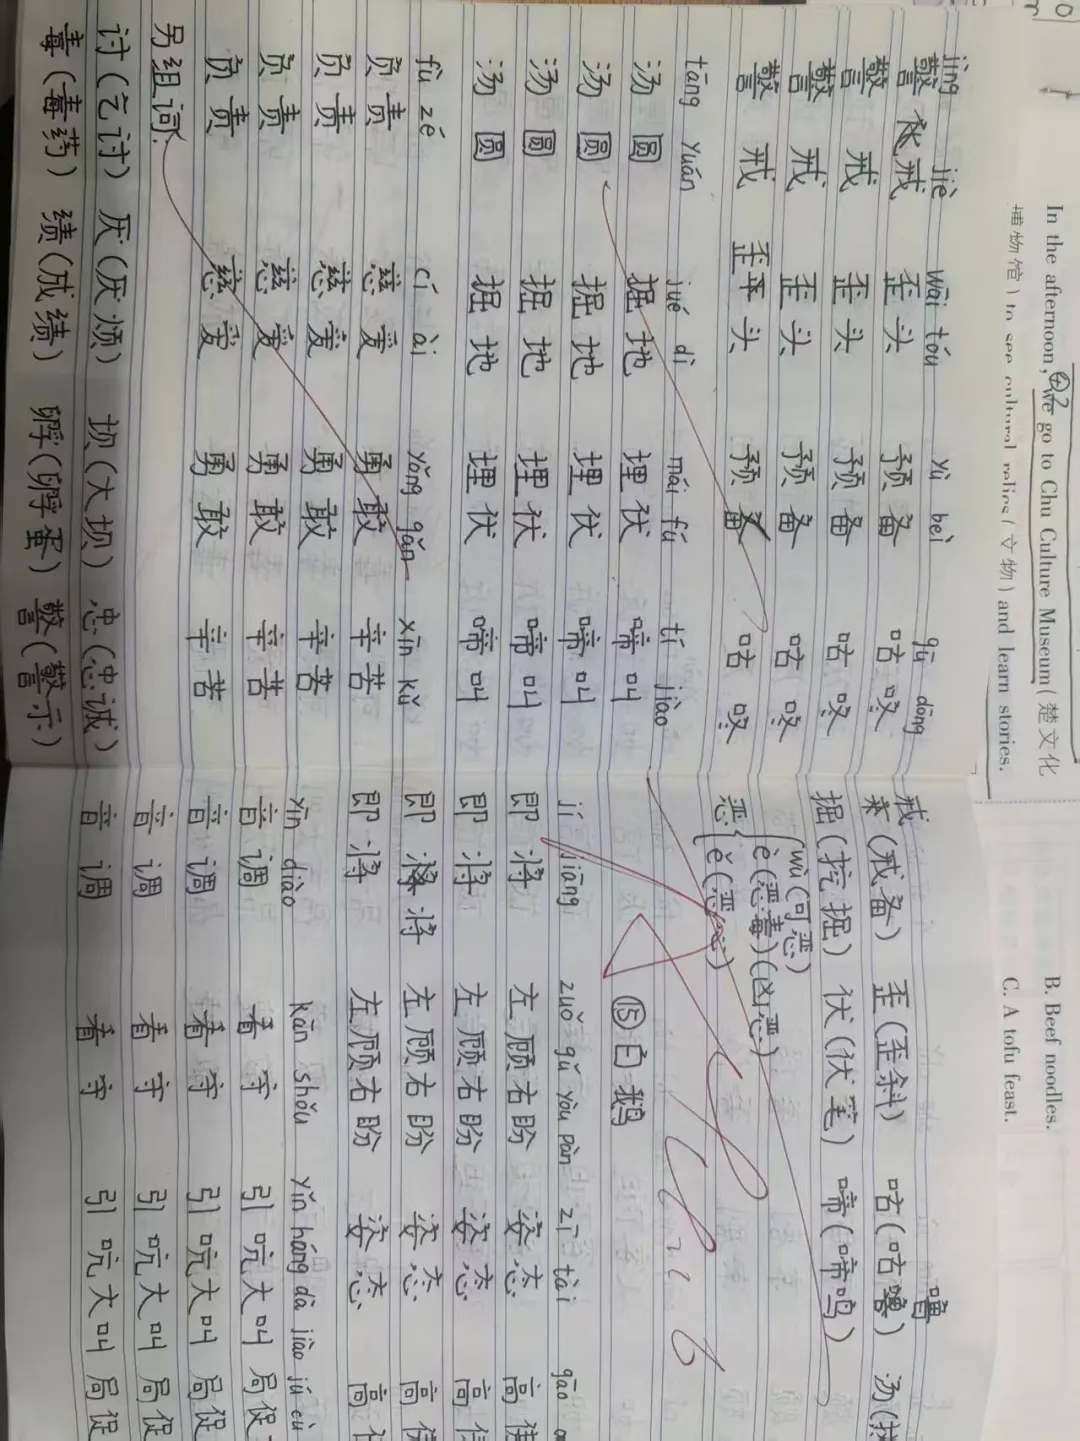 In the afternoon, we go to Chu Culture Museum(楚文化
博物馆) to see cultural relics (文物) and learn stories.
B. Beef noodles.
C. A tofu feast.
jǐng jiè wāi tóu yù bèi gū dōng
警戒 歪头 预备 咕咚
警戒 歪头 预备 咕咚
警戒 歪头 预备 咕咚
警戒 歪头 预备 咕咚
tāng yuán jué dì mái fú tí jiào
汤圆 掘地 埋伏 啼叫
汤圆 掘地 埋伏 啼叫
汤圆 掘地 埋伏 啼叫
汤圆 掘地 埋伏 啼叫
fù zé cí ài yǒng gǎn xīn kǔ
负责 慈爱 勇敢 辛苦
负责 慈爱 勇敢 辛苦
负责 慈爱 勇敢 辛苦
负责 慈爱 勇敢 辛苦
另组词:
讨(乞讨) 厌(厌烦) 坝(大坝) 忠(忠诚)
毒(毒药) 绩(成绩) 孵(孵蛋) 警(警示)
戒(戒备) 歪(歪斜) 咕(咕噜) 汤(
掘(挖掘) 伏(伏笔) 啼(啼鸣)
恶{wù(可恶)
è(恶毒)(凶恶)
ě(恶心)
⑮白鹅
jí jiāng zuǒ gù yòu pàn zī tài gāo
即将 左顾右盼 姿态 高
即将 左顾右盼 姿态 高
即将 左顾右盼 姿态 高
即将 左顾右盼 姿态 高
yīn diào kān shǒu yǐn háng dà jiào jú cù
音调 看守 引吭大叫 局促
音调 看守 引吭大叫 局促
音调 看守 引吭大叫 局促
音调 看守 引吭大叫 局促